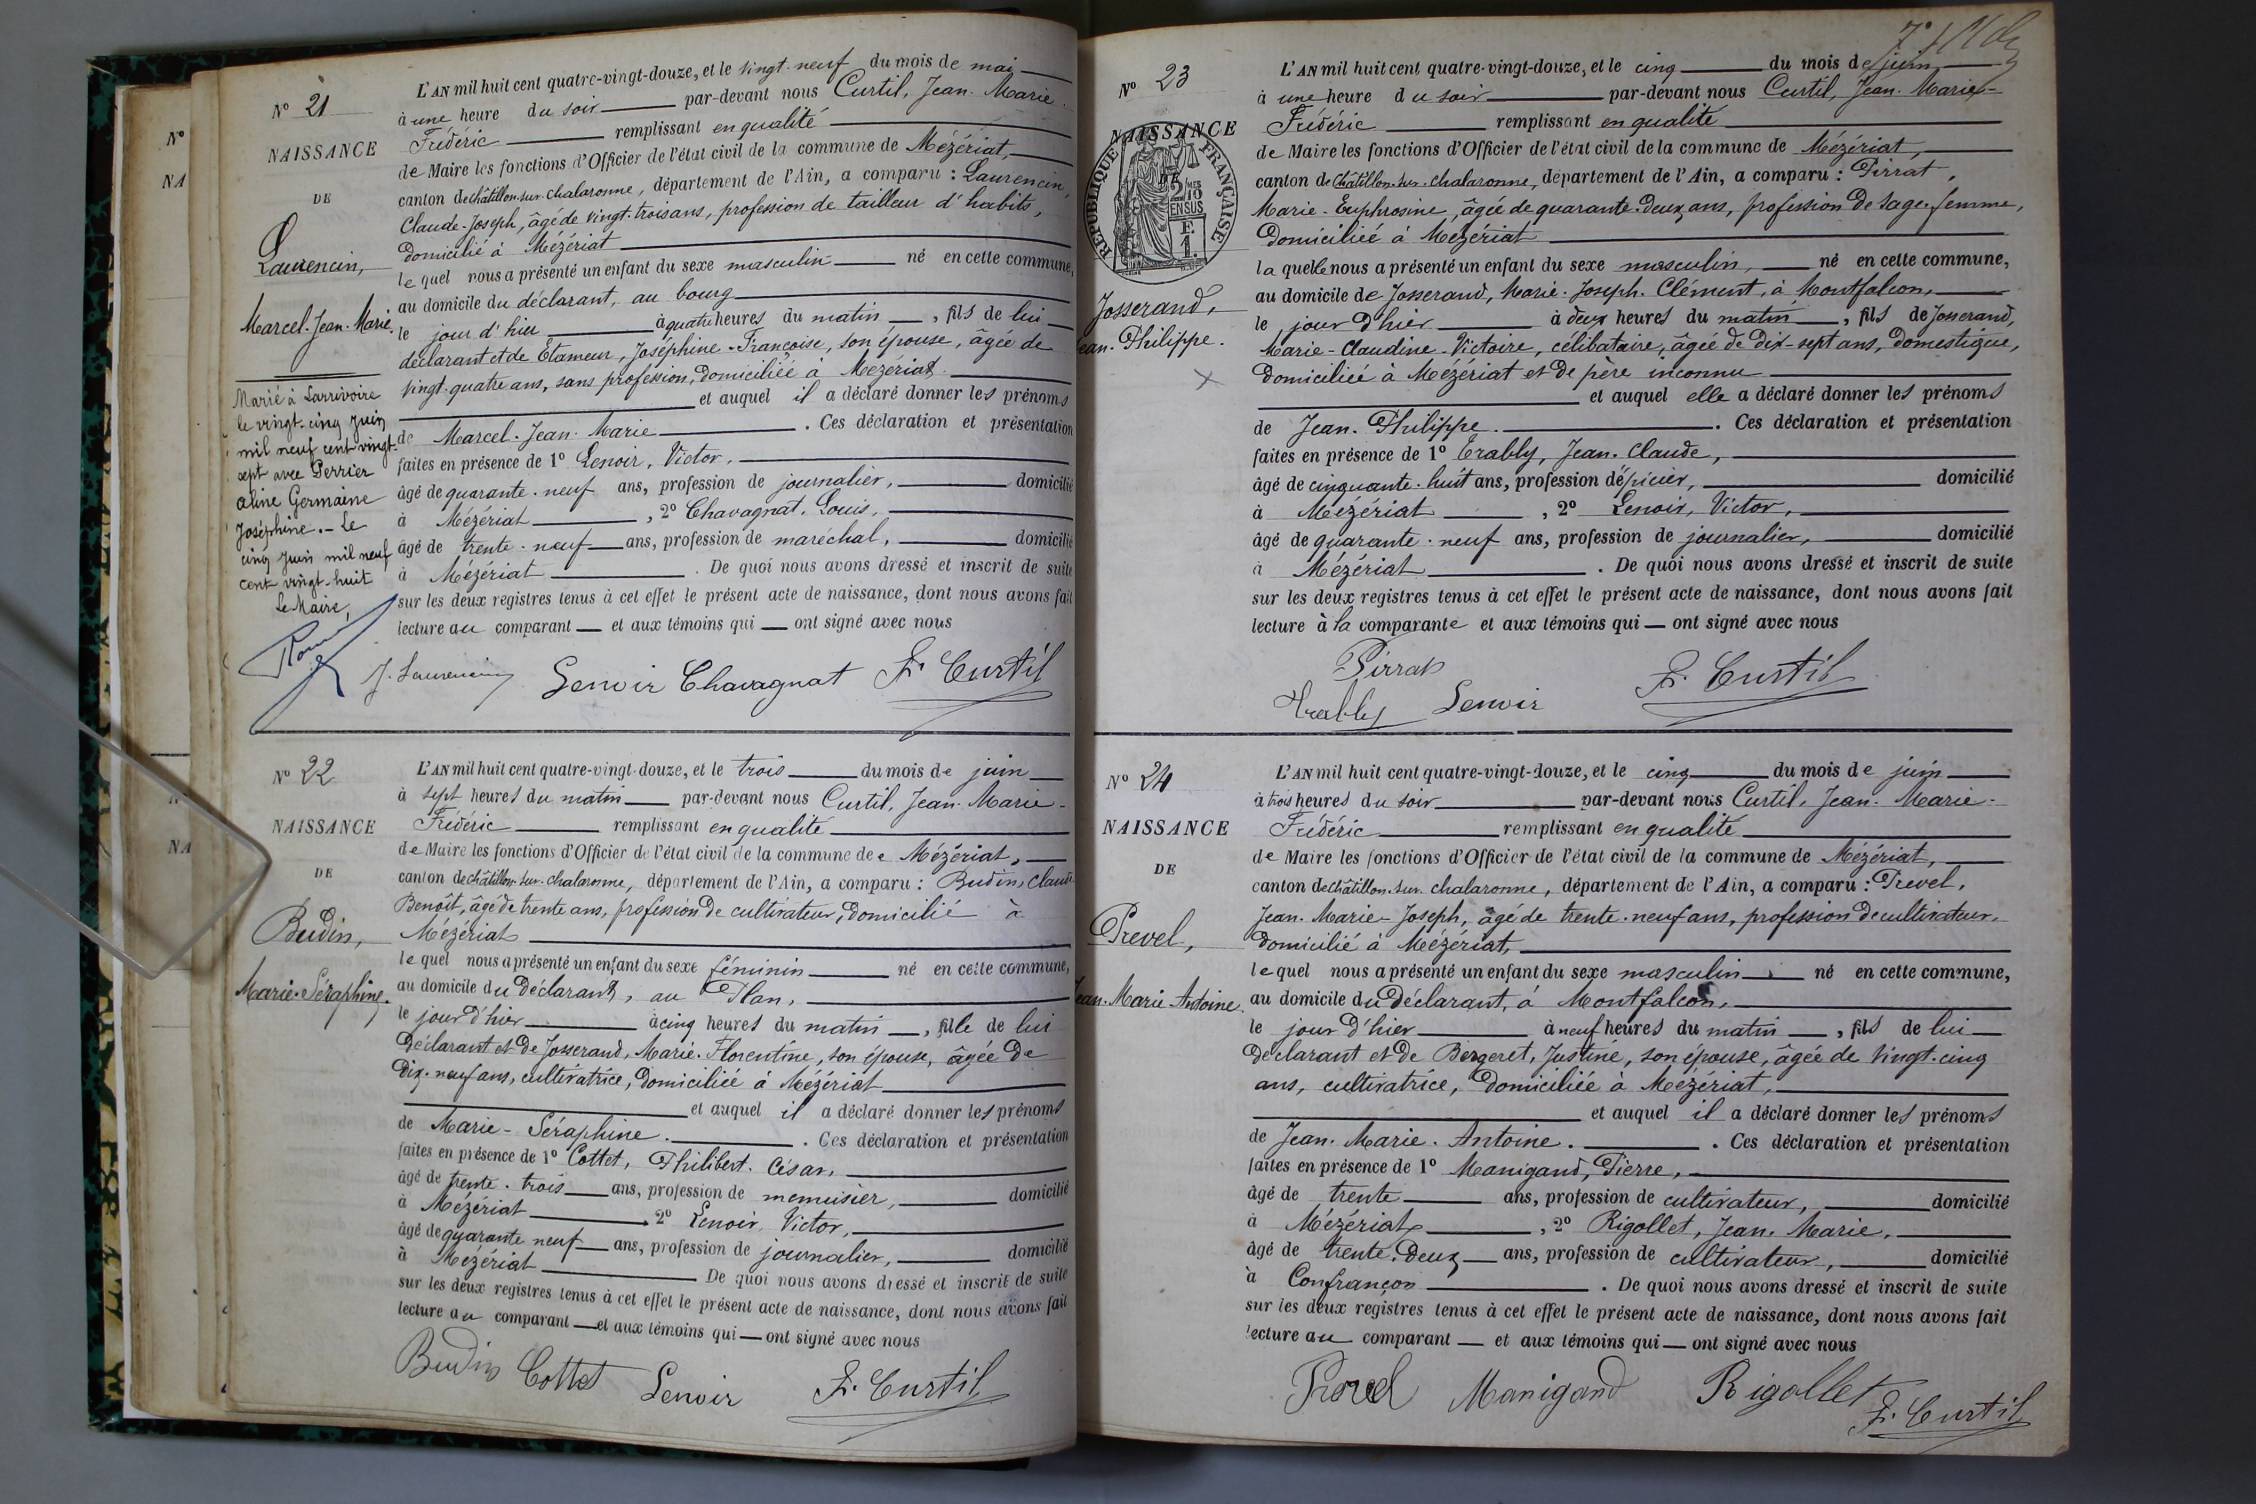 N° 21
NAISSANCE
DE
Laurencin,
Marcel-Jean-Marie
Marié à Larrivoire
le vingt-cinq Juin
mil neuf cent vingt-
sept avec Perrier
Aline Germaine
Joséphine. - Le
cinq Juin mil neuf
cent vingt-huit
Le Maire,
L'AN mil huit cent quatre-vingt-douze, et le vingt-neuf du mois de mai
à une heure du soir par-devant nous Curtil, Jean-Marie-
Frédéric remplissant en qualité
de Maire les fonctions d'Officier de l'état civil de la commune de Mézériat,
canton de Châtillon-sur-Chalaronne, département de l'Ain, a comparu : Laurencin,
Claude-Joseph, âgé de vingt-trois ans, profession de tailleur d'habits,
domicilié à Mézériat
lequel nous a présenté un enfant du sexe masculin né en cette commune,
au domicile du déclarant, au bourg
le jour d'hier à quatre heures du matin, fils de lui
déclarant et de Etameur, Joséphine-Françoise, son épouse, âgée de
vingt-quatre ans, sans profession, domiciliée à Mézériat.
et auquel il a déclaré donner les prénoms
de Marcel-Jean-Marie. Ces déclaration et présentation
faites en présence de 1° Lenoir, Victor,
âgé de quarante-neuf ans, profession de journalier, domicilié
à Mézériat, 2° Chavagnat, Louis,
âgé de trente-neuf ans, profession de maréchal, domicilié
à Mézériat. De quoi nous avons dressé et inscrit de suite
sur les deux registres tenus à cet effet le présent acte de naissance, dont nous avons fait
lecture au comparant et aux témoins qui ont signé avec nous
J. Laurencin Lenoir Chavagnat F. Curtil
N° 22
NAISSANCE
DE
Budin,
Marie-Séraphine.
L'AN mil huit cent quatre-vingt-douze, et le trois du mois de juin
à sept heures du matin par-devant nous Curtil, Jean-Marie-
Frédéric remplissant en qualité
de Maire les fonctions d'Officier de l'état civil de la commune de Mézériat,
canton de Châtillon-sur-Chalaronne, département de l'Ain, a comparu : Budin, Claude
Benoît, âgé de trente ans, profession de cultivateur, domicilié à
Mézériat
lequel nous a présenté un enfant du sexe féminin né en cette commune,
au domicile du déclarant, au Plan,
le jour d'hier à cinq heures du matin, fille de lui
déclarant et de Josserand, Marie-Florentine, son épouse, âgée de
dix-neuf ans, cultivatrice, domiciliée à Mézériat
et auquel il a déclaré donner les prénoms
de Marie-Séraphine. Ces déclaration et présentation
faites en présence de 1° Cottet, Philibert-César,
âgé de trente-trois ans, profession de menuisier, domicilié
à Mézériat, 2° Lenoir, Victor,
âgé de quarante neuf ans, profession de journalier, domicilié
à Mézériat De quoi nous avons dressé et inscrit de suite
sur les deux registres tenus à cet effet le présent acte de naissance, dont nous avons fait
lecture au comparant et aux témoins qui ont signé avec nous
Budin Cottet Lenoir F. Curtil
N° 23
NAISSANCE
RÉPUBLIQUE FRANÇAISE
Josserand,
Jean-Philippe.
L'AN mil huit cent quatre-vingt-douze, et le cinq du mois de juin
à une heure du soir par-devant nous Curtil, Jean-Marie-
Frédéric remplissant en qualité
de Maire les fonctions d'Officier de l'état civil de la commune de Mézériat,
canton de Châtillon-sur-Chalaronne, département de l'Ain, a comparu : Pirrat,
Marie-Euphrosine, âgée de quarante-deux ans, profession de sage-femme,
domiciliée à Mézériat
laquelle nous a présenté un enfant du sexe masculin, né en cette commune,
au domicile de Josserand, Marie-Joseph-Clément, à Montfalcon,
le jour d'hier à deux heures du matin, fils de Josserand,
Marie-Claudine-Victoire, célibataire, âgée de dix-sept ans, domestique,
domiciliée à Mézériat et de père inconnu
et auquel elle a déclaré donner les prénoms
de Jean-Philippe. Ces déclaration et présentation
faites en présence de 1° Erably, Jean-Claude,
âgé de cinquante-huit ans, profession d'épicier, domicilié
à Mézériat, 2° Lenoir, Victor,
âgé de quarante-neuf ans, profession de journalier, domicilié
à Mézériat. De quoi nous avons dressé et inscrit de suite
sur les deux registres tenus à cet effet le présent acte de naissance, dont nous avons fait
lecture à la comparante et aux témoins qui ont signé avec nous
Pirrat F. Curtil
Erably Lenoir
N° 24
NAISSANCE
DE
Prevel,
Jean-Marie-Antoine.
L'AN mil huit cent quatre-vingt-douze, et le cinq du mois de juin
à trois heures du soir par-devant nous Curtil, Jean-Marie-
Frédéric remplissant en qualité
de Maire les fonctions d'Officier de l'état civil de la commune de Mézériat,
canton de Châtillon-sur-Chalaronne, département de l'Ain, a comparu : Prevel,
Jean-Marie-Joseph, âgé de trente-neuf ans, profession de cultivateur,
domicilié à Mézériat,
lequel nous a présenté un enfant du sexe masculin né en cette commune,
au domicile du déclarant, à Montfalcon,
le jour d'hier à neuf heures du matin, fils de lui
déclarant et de Bergeret, Justine, son épouse, âgée de vingt-cinq
ans, cultivatrice, domiciliée à Mézériat,
et auquel il a déclaré donner les prénoms
de Jean-Marie-Antoine. Ces déclaration et présentation
faites en présence de 1° Manigand, Pierre,
âgé de trente ans, profession de cultivateur, domicilié
à Mézériat, 2° Rigollet, Jean-Marie,
âgé de trente-deux ans, profession de cultivateur, domicilié
à Confrançon. De quoi nous avons dressé et inscrit de suite
sur les deux registres tenus à cet effet le présent acte de naissance, dont nous avons fait
lecture au comparant et aux témoins qui ont signé avec nous
Prevel Manigand Rigollet F. Curtil